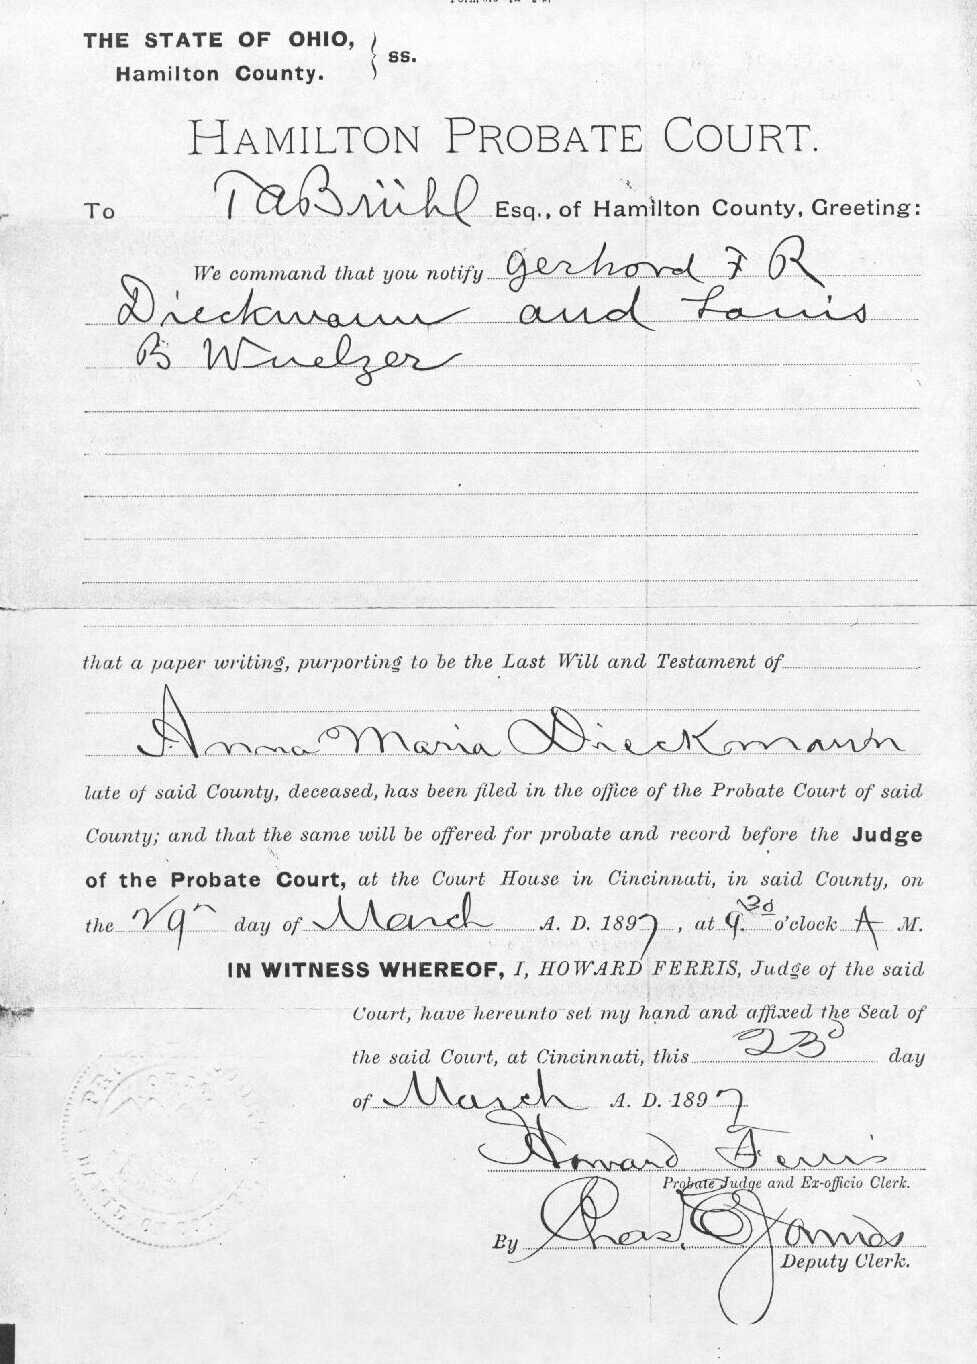 THE STATE OF OHIO,
Hamilton County.
ss.
HAMILTON PROBATE COURT.
To T A Brühl Esq., of Hamilton County, Greeting:
We command that you notify Gerhard F R
Dieckmann and Louis
B Wuelzer
that a paper writing, purporting to be the Last Will and Testament of
Anna Maria Dieckmann
late of said County, deceased, has been filed in the office of the Probate Court of said
County; and that the same will be offered for probate and record before the Judge
of the Probate Court, at the Court House in Cincinnati, in said County, on
the 29th day of March A. D. 1897, at 9.30 o'clock A M.
IN WITNESS WHEREOF, I, HOWARD FERRIS, Judge of the said
Court, have hereunto set my hand and affixed the Seal of
the said Court, at Cincinnati, this 23d day
of March A. D. 1897
Howard Ferris
Probate Judge and Ex-officio Clerk.
By Chas. E
Deputy Clerk.